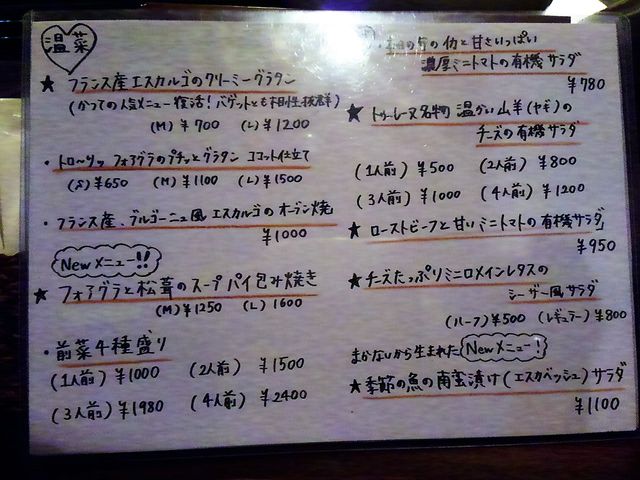 温菜
★ フランス産エスカルゴのクリーミーグラタン
(かつての人気メニュー復活!バゲットとも相性抜群)
(M) ¥700 (L) ¥1200
・トロ〜リッ フォアグラのプチッとグラタン ココット仕立て
(S) ¥650 (M) ¥1100 (L) ¥1500
・フランス産、ブルゴーニュ風 エスカルゴの オーブン焼
¥1000
Newメニュー!!
★ フォアグラと松茸のスープ パイ包み焼き
(M) ¥1250 (L) 1600
・前菜4種盛り
(1人前) ¥1000 (2人前) ¥1500
(3人前) ¥1980 (4人前) ¥2400
と甘さいっぱい
濃厚ミニトマトの有機サラダ
¥780
★ トゥーレーヌ名物 温かい山羊(ヤギ)の
チーズの有機サラダ
(1人前) ¥500 (2人前) ¥800
(3人前) ¥1000 (4人前) ¥1200
★ ローストビーフと甘いミニトマトの有機サラダ
¥950
★ チーズたっぷりミニロメインレタスの
シーザー風サラダ
(ハーフ) ¥500 (レギュラー) ¥800
まかないから生まれた Newメニュー!
★ 季節の魚の南蛮漬け(エスカベッシュ)サラダ
¥1100